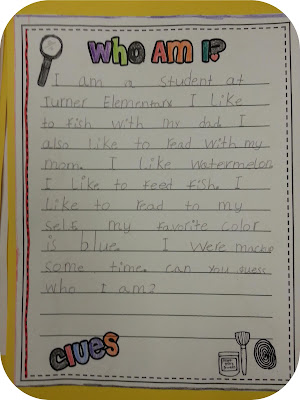 WHO AM I?
I am a student at
Turner Elementary I Like
to fish with my dad I
also like to read with my
mom. I like watermelon
I Like to feed fish. I
Like to read to my
self. my favorite color
is blue. I were
some time. can you guess
who I am?
CLUES